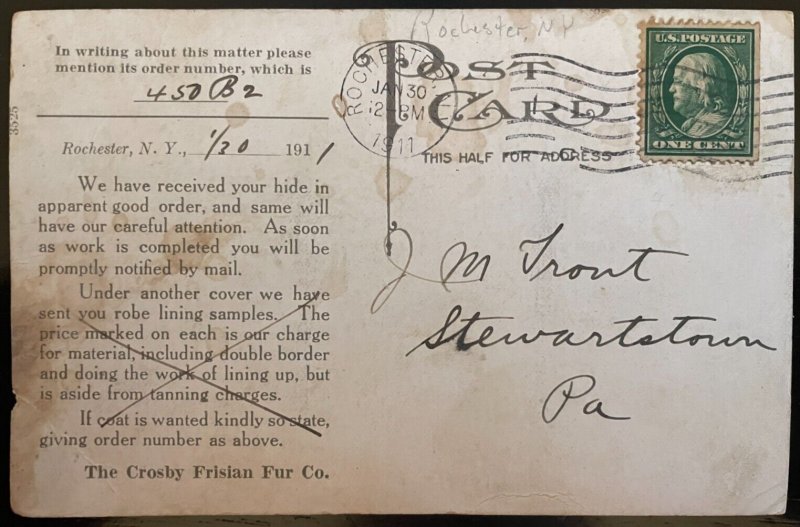 In writing about this matter please
mention its order number, which is
450 B2
3525
Rochester, N. Y., 1/30 1911
We have received your hide in
apparent good order, and same will
have our careful attention. As soon
as work is completed you will be
promptly notified by mail.
Under another cover we have
sent you robe lining samples. The
price marked on each is our charge
for material, including double border
and doing the work of lining up, but
is aside from tanning charges.
If coat is wanted kindly so state,
giving order number as above.
The Crosby Frisian Fur Co.
Rochester, NY
POST
CARD
THIS HALF FOR ADDRESS
ROCHESTER
JAN 30
12-PM
1911
U.S. POSTAGE
ONE CENT
J M Trout
Stewartstown
Pa